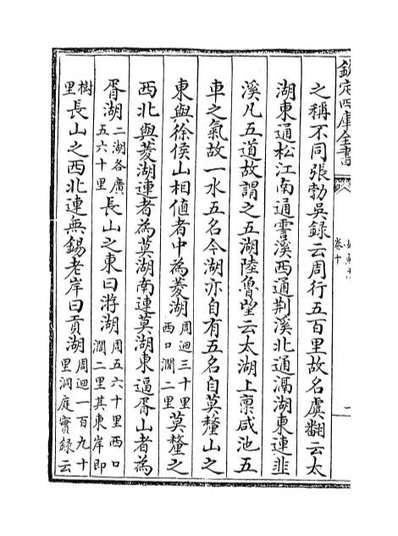 欽定四庫全書
卷十
之稱不同張勃吳錄云周行五百里故名虞翻云太
湖東通松江南通霅溪西通荆溪北通滆湖東連韭
溪凡五道故謂之五湖陸魯望云太湖上禀咸池五
車之氣故一水五名今湖亦自有五名自莫釐山之
東與徐侯山相值者中為菱湖周迴三十里西口濶二里莫釐之
西北與菱湖連者為莫湖南連莫湖東逼胥山者為
胥湖二湖各廣五六十里長山之東曰游湖周五六十里西口濶二里其東岸即
樹里長山之西北連無錫老岸曰貢湖周迴一百九十里洞庭實錄云